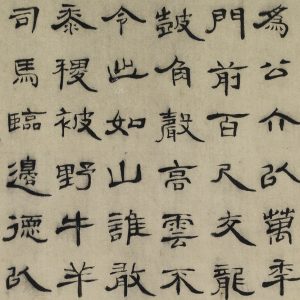 為公介以萬年
門前百尺交龍
鼓角聲高雲不
今此如山誰敢
黍稷被野牛羊
司馬臨邊德以